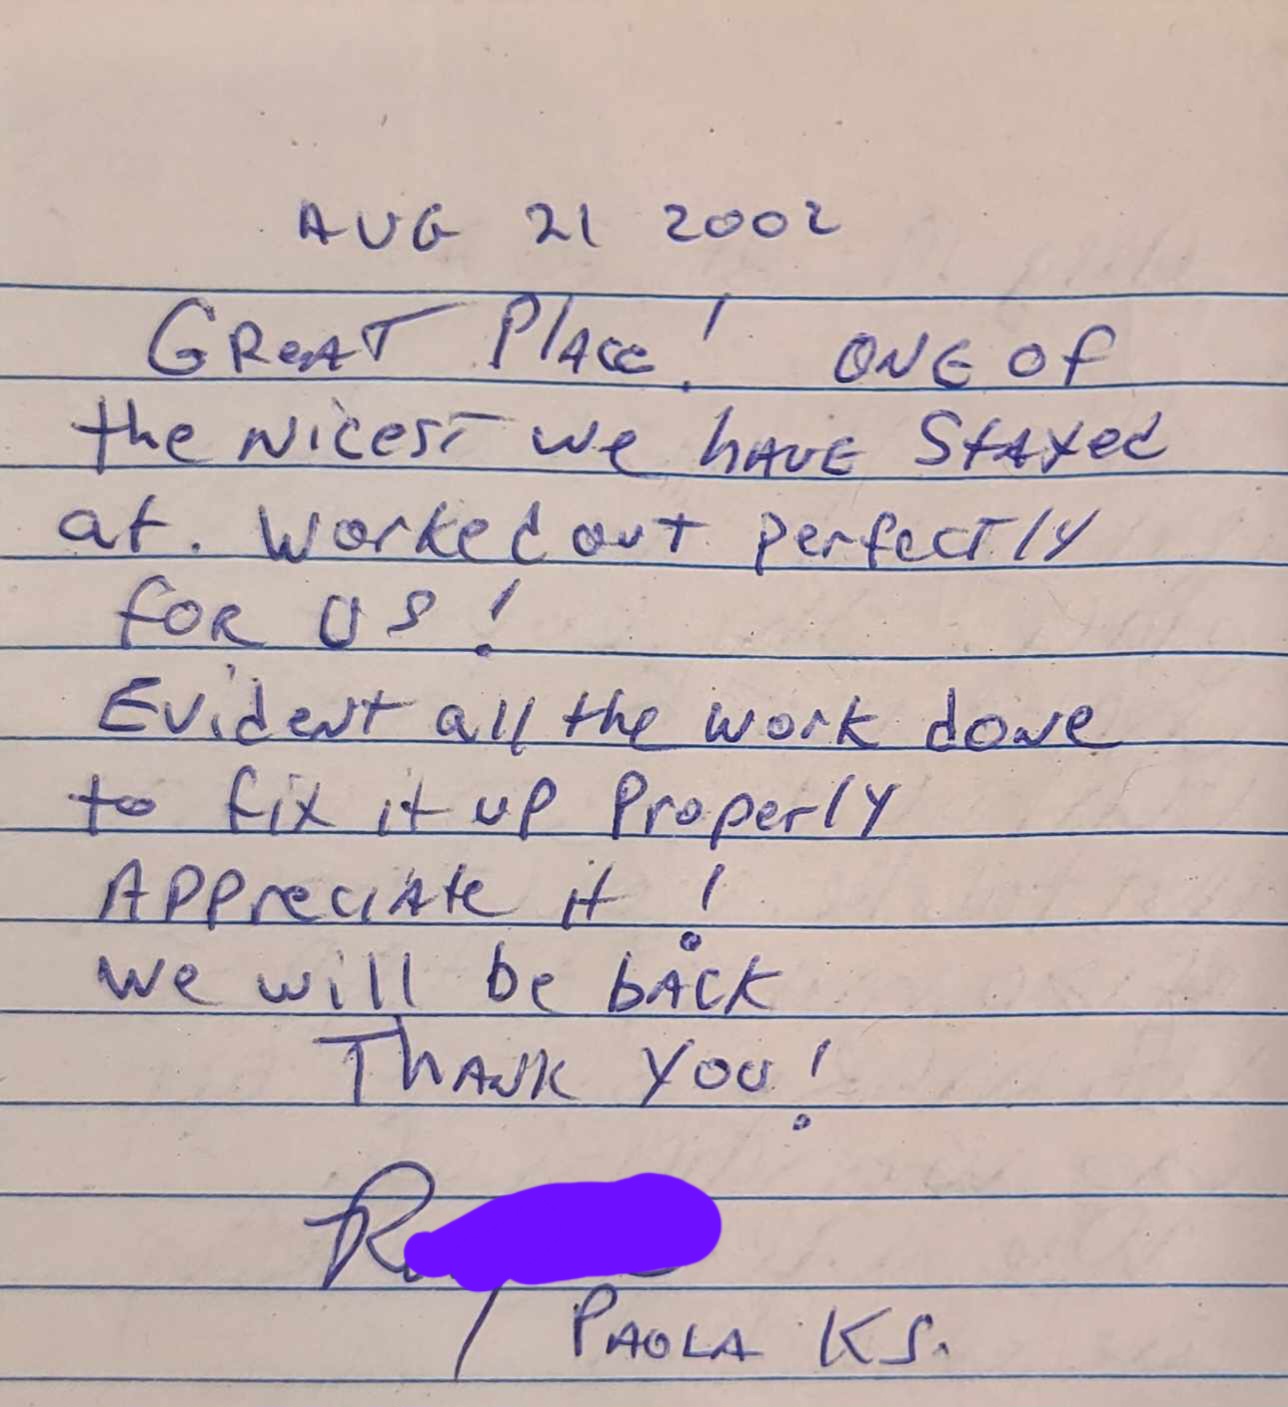 AUG 21 2002
GREAT PlAce! ONE Of
the Nicest we hAVE StAyed
at. Worked out perfectly
for US!
Evident all the work done
to fix it up Properly
APPreciAte it!
We will be bAck
ThANK You!
PAOLA KS.